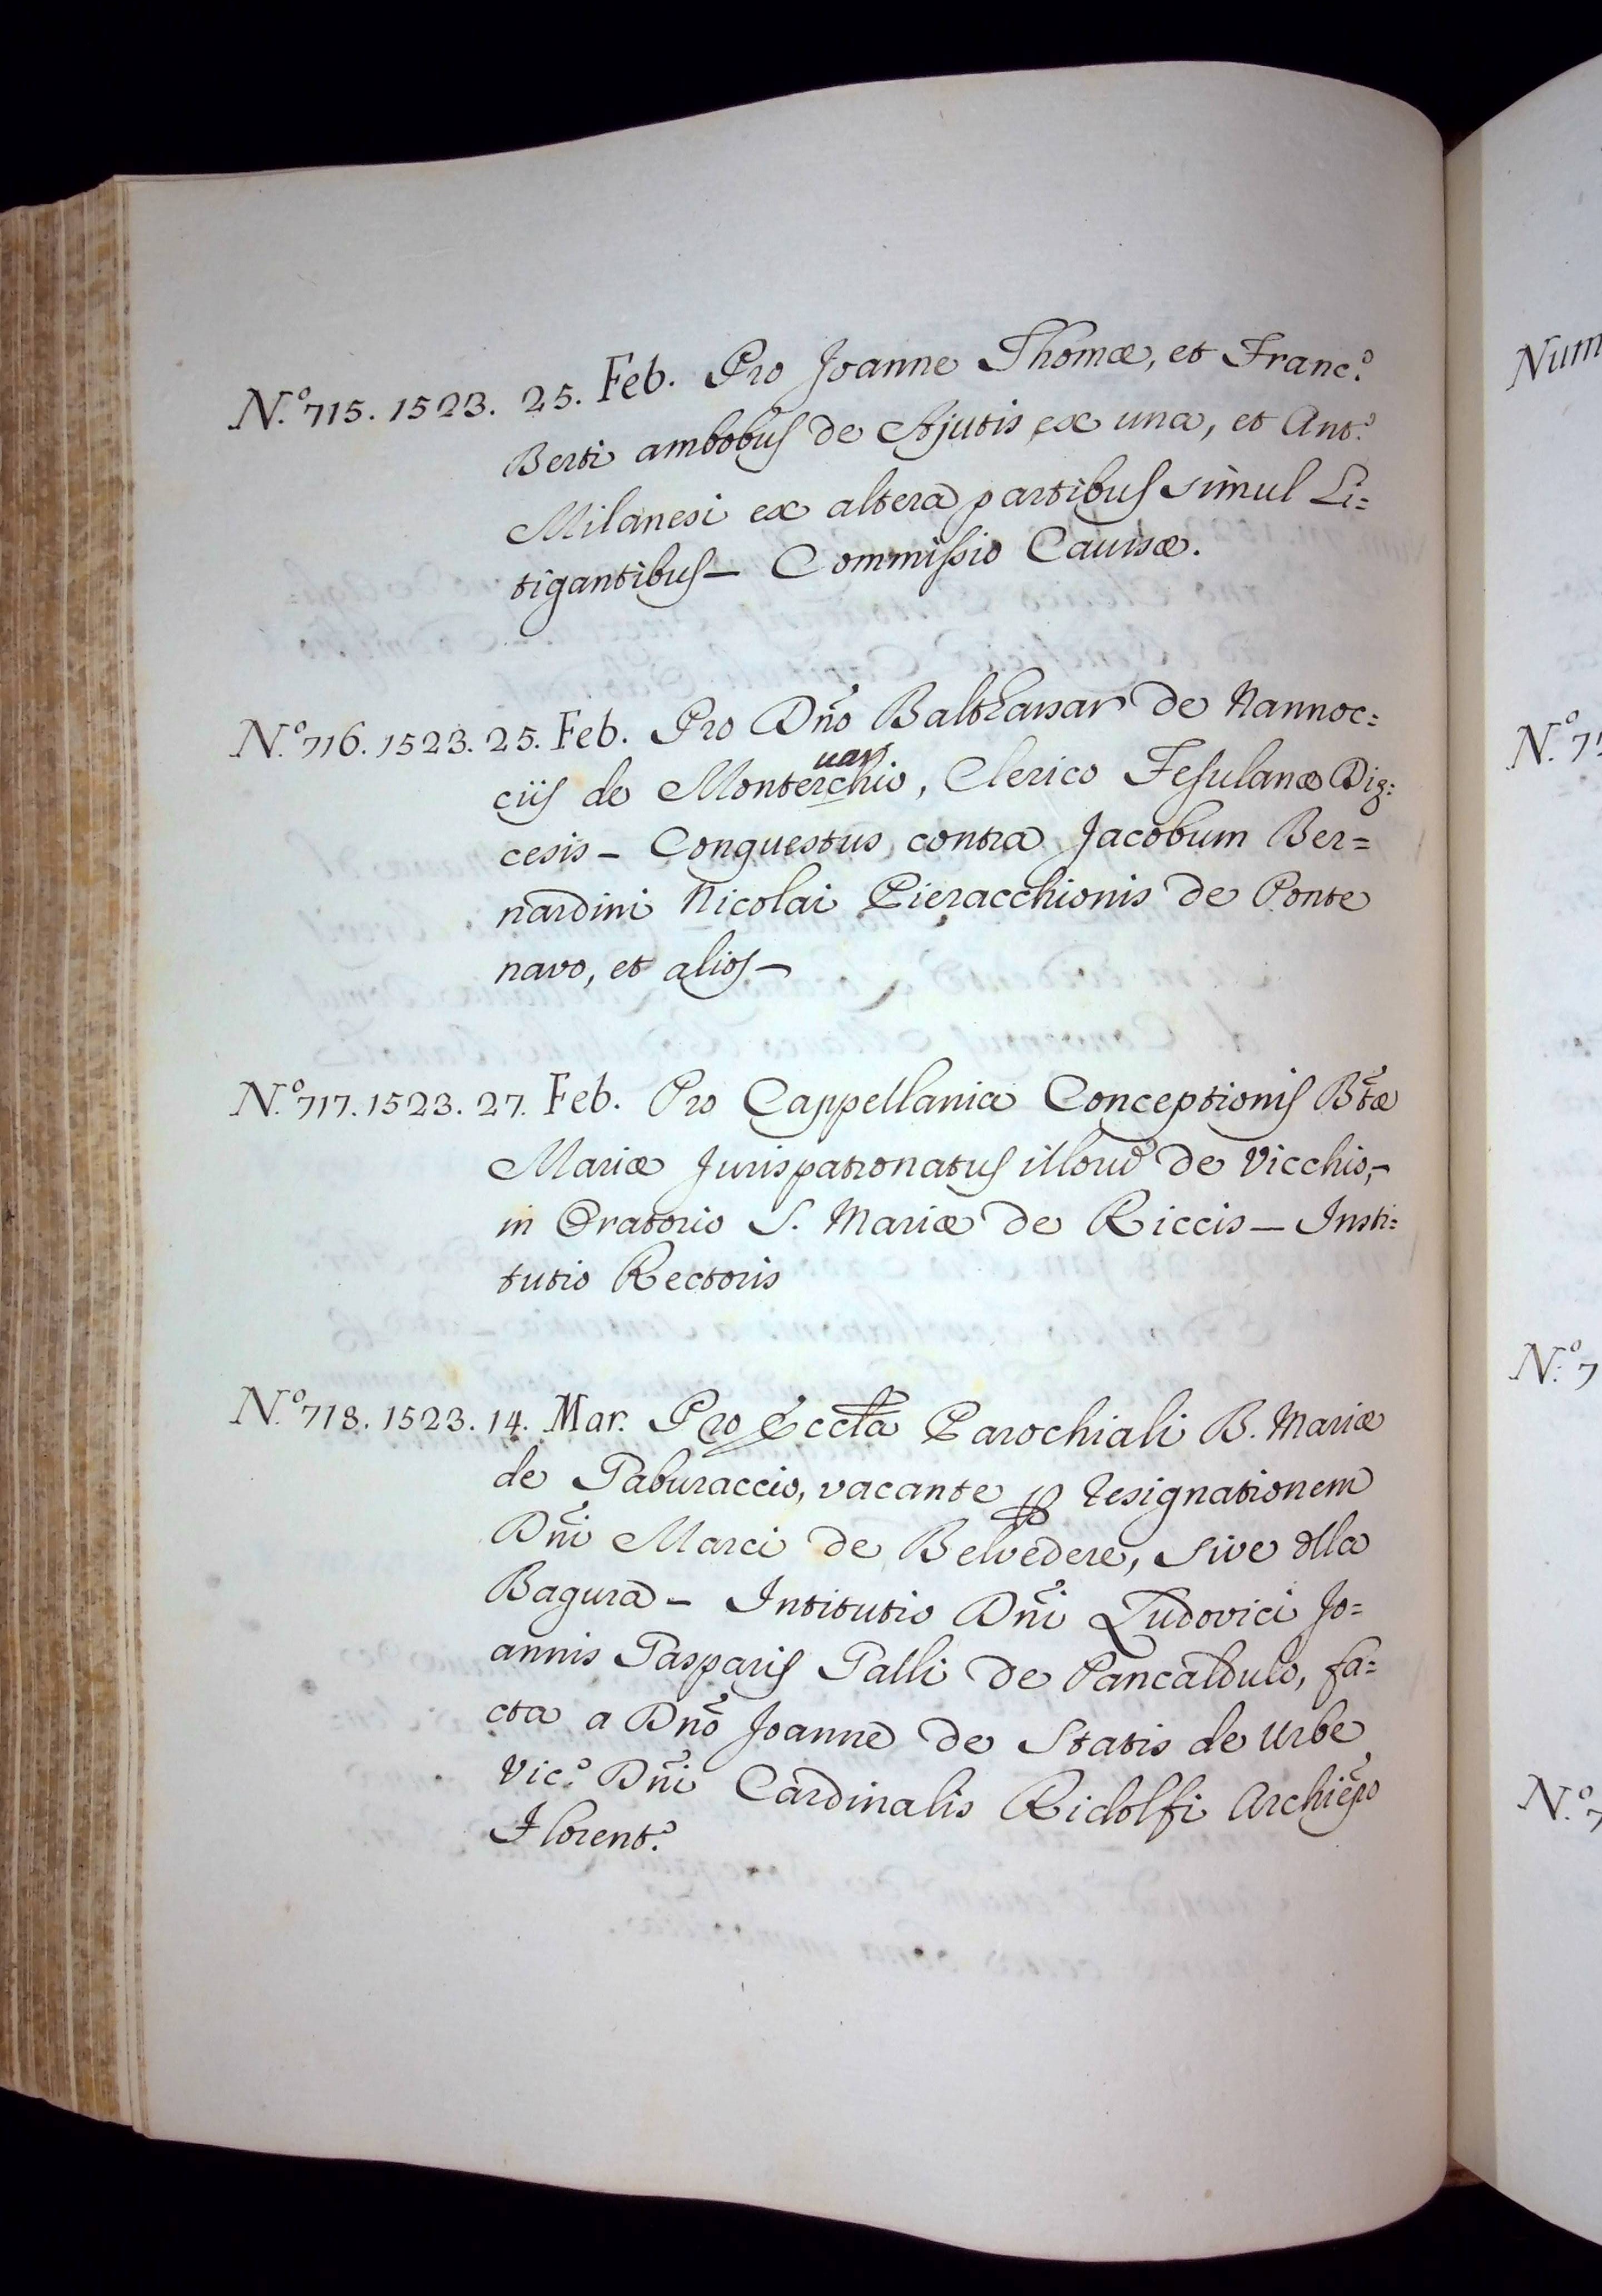 N.º 715. 1523. 25. Feb. Pro Joanne Thomæ, et Franc.º
Berti ambobus de Ajutis ex una, et Ant.º
Milanesi ex altera partibus simul Li=
tigantibus – Commissio Causæ.
N.º 716. 1523. 25. Feb. Pro Dño Balthassar de Nannoc=
uar
ciis de Monterchio, Clerico Fesulanæ Diæ=
cesis – Conquestus contra Jacobum Ber=
nardini Nicolai Pieracchionis de Ponte
navo, et alios –
N.º 717. 1523. 27. Feb. Pro Cappellania Conceptionis Btæ
Mariæ Jurispatronatus illorũ de Vicchio, –
in Oratorio S. Mariæ de Riccis – Insti=
tutio Rectoris
N.º 718. 1523. 14. Mar. Pro Eccła Parochiali B. Mariæ
de Paburaccio, vacante ꝑ resignationem
Dñi Marci de Belvedere, sive
Bagura – Intitutio Dñi Ludovici Jo=
annis Gasparis Galli de Pancaldulo, fa=
cta a Dño Joanne de Statis de Urbe
Vic.º Dñi Cardinalis Ridolfi Archiepo
Florent.º
Num
N.º 7
N.º 7
N.º 7